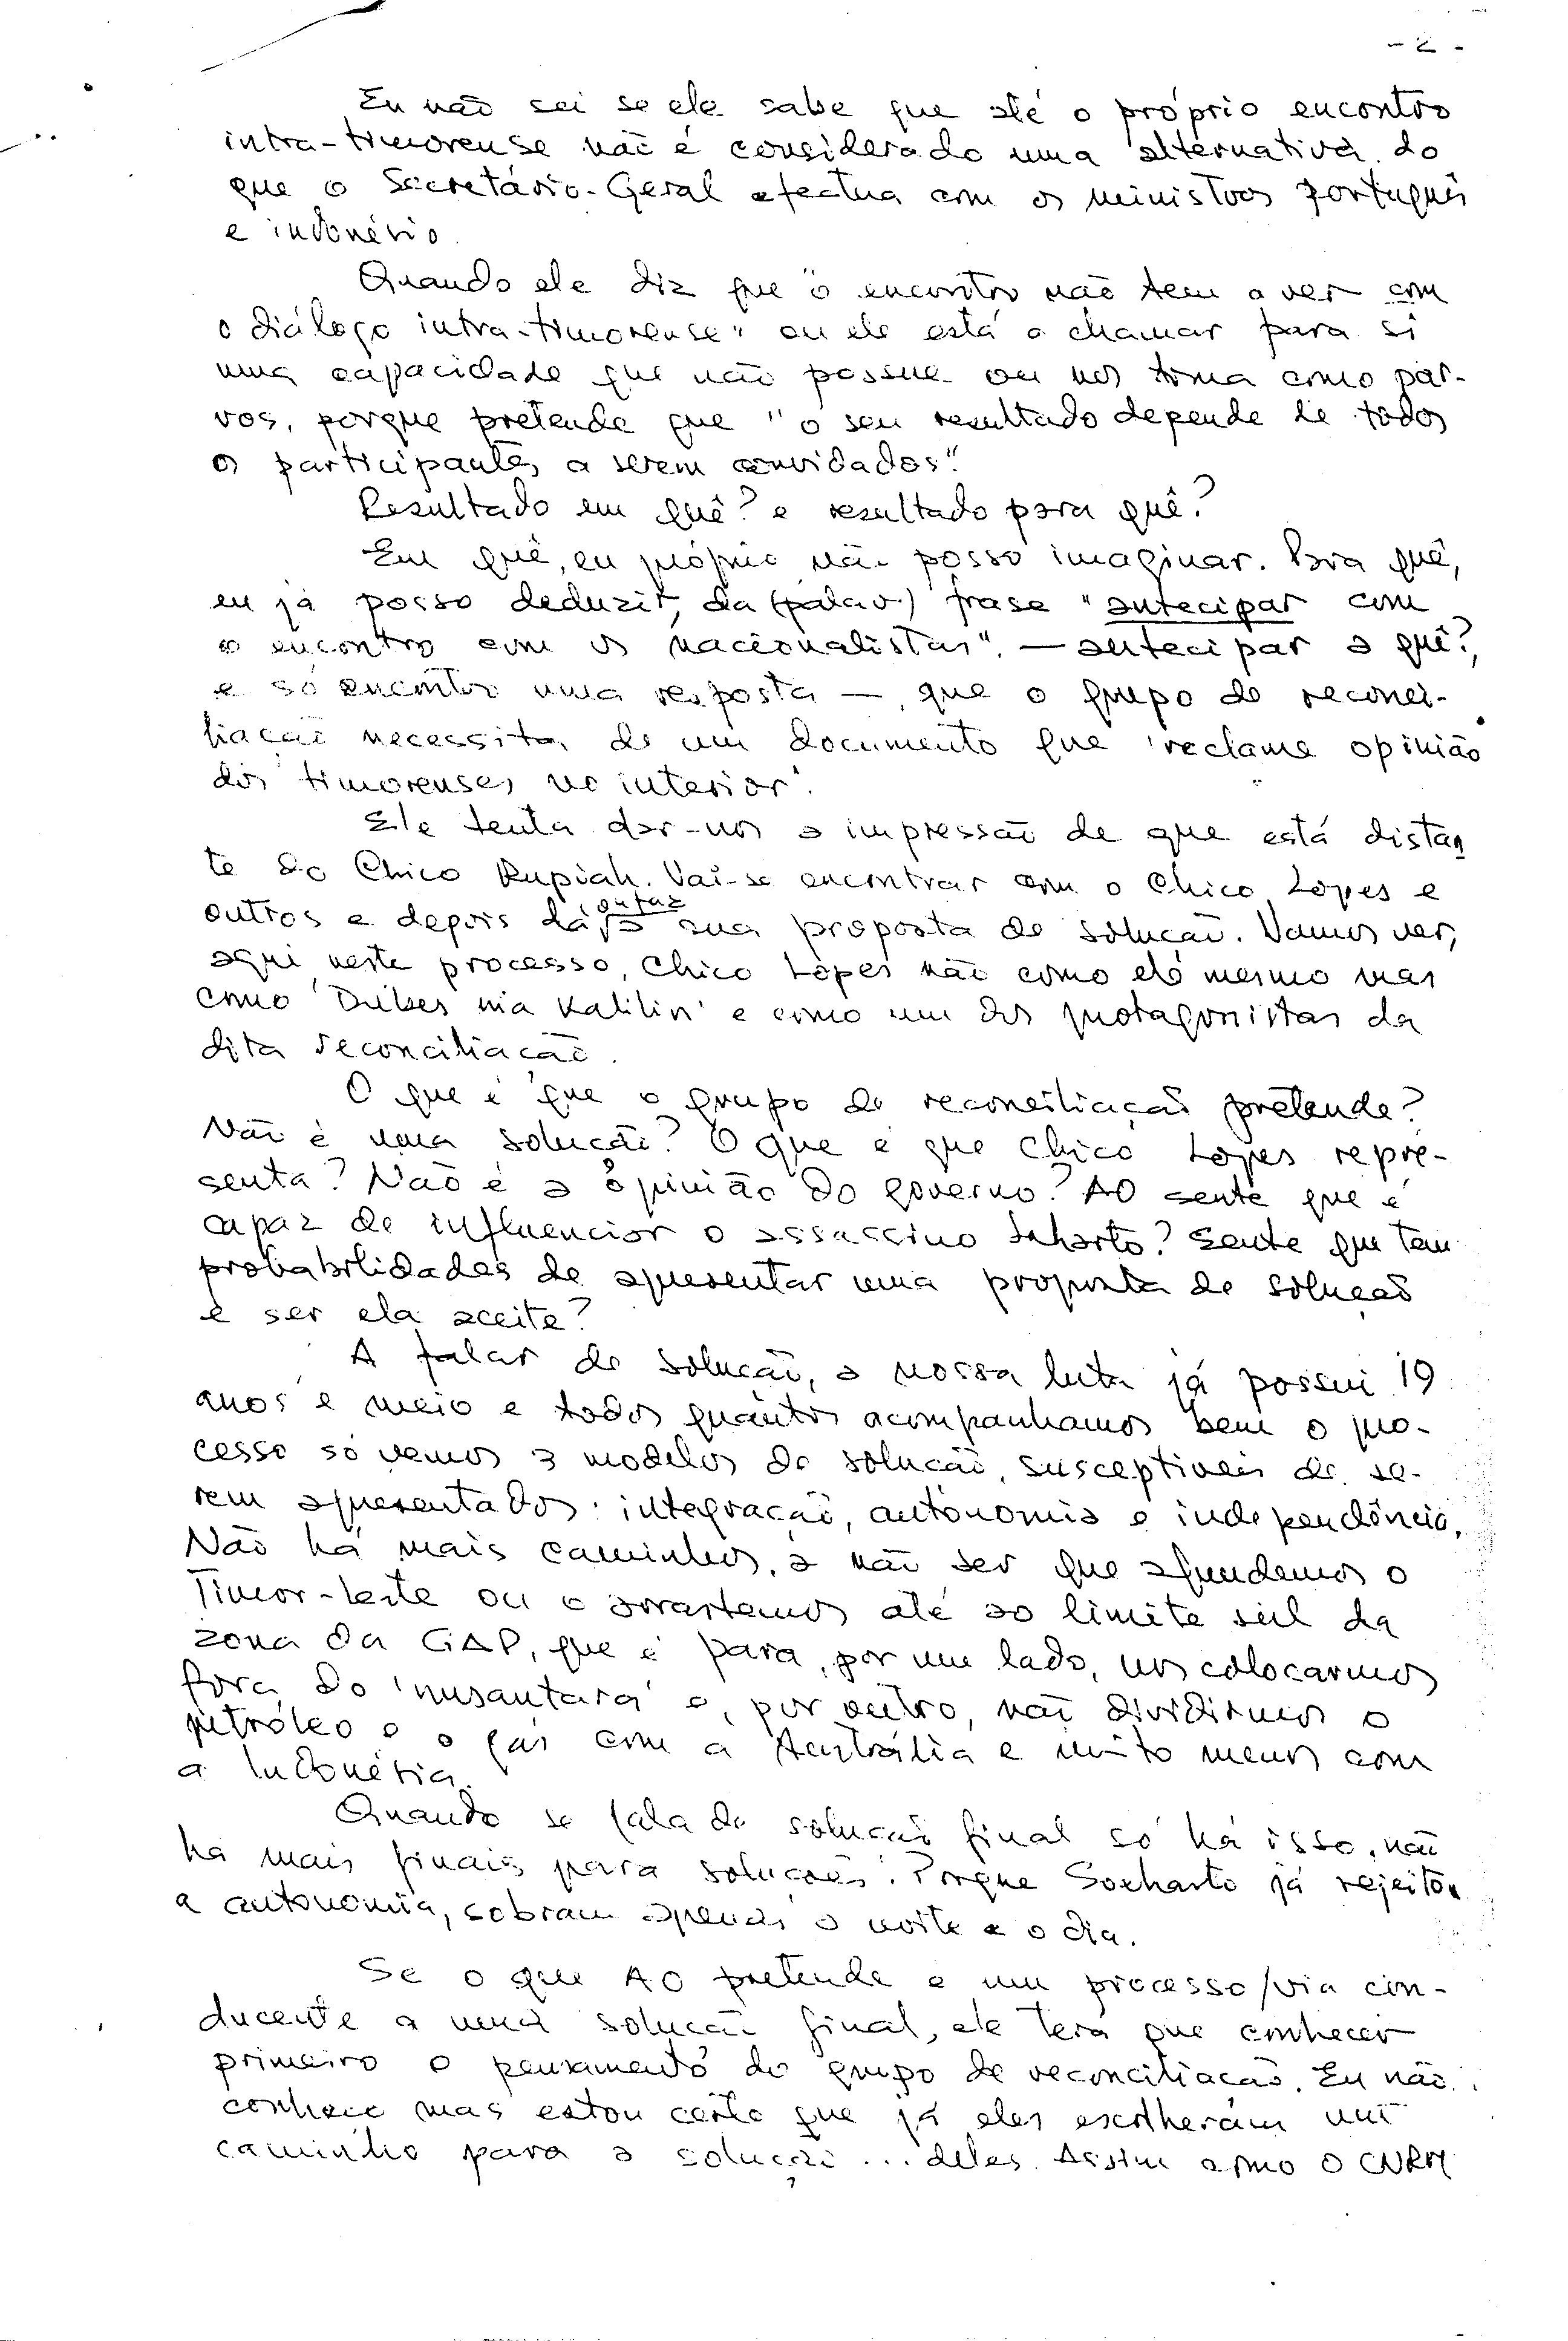 - 2 -
Eu não sei se ele sabe que até o próprio encontro
intra-timorense não é considerado uma alternativa do
que o Secretário-Geral efectua com os ministros português
e indonésio.
Quando ele diz que "o encontro não tem a ver com
o diálogo intra-timorense" ou ele está a chamar para si
uma capacidade que não possue ou nos toma como pár-
vos, porque pretende que "o seu resultado depende de todos
os participantes a serem convidados".
Resultado em quê? e resultado para quê?
Em quê, eu próprio não posso imaginar. Para quê,
eu já posso deduzir, da (palav.) frase "antecipar com
o encontro com os nacionalistas", — antecipar a quê?,
e só encontro uma resposta —, que o grupo de reconci-
liação necessita de um documento que 'reclame opinião
dos timorenses no interior'.
Ele tenta dar-nos a impressão de que está distan
te do Chico Rupiah. Vai-se encontrar com o Chico Lopes e
outros e depois dá/faz a sua proposta de solução. Vamos ver,
aqui neste processo, Chico Lopes não como ele mesmo mas
como 'Dubes nia Kalilin' e como um dos protagonistas da
dita reconciliação.
O que é que o grupo de reconciliação pretende?
Não é uma solução? O que é que Chico Lopes repre-
senta? Não é a opinião do governo? AO sente que é
capaz de influenciar o assassino Suharto? Sente que tem
probabilidades de apresentar uma proposta de solução
e ser ela aceite?
A falar de solução, a nossa luta já possui 19
anos e meio e todos quantos acompanhamos bem o pro-
cesso só vemos 3 modelos de solução, susceptíveis de se-
rem apresentados: integração, autonomia e independência.
Não há mais caminhos, a não ser que afundemos o
Timor-Leste ou o arrastemos até ao limite sul da
zona da GAP, que é para, por um lado, nos colocarmos
fora do 'nusantara' e, por outro, não dividirmos o
petróleo e o gás com a Austrália e muito menos com
a Indonésia.
Quando se fala de solução final só há isso, não
há mais finais para soluções. Porque Soeharto já rejeitou
a autonomia, sobram apenas a noite e o dia.
Se o que AO pretende é um processo/via con-
ducente a uma solução final, ele terá que conhecer
primeiro o pensamento do grupo de reconciliação. Eu não
conheço mas estou certo que já eles escolheram um
caminho para a solução... deles. Assim como o CNRM